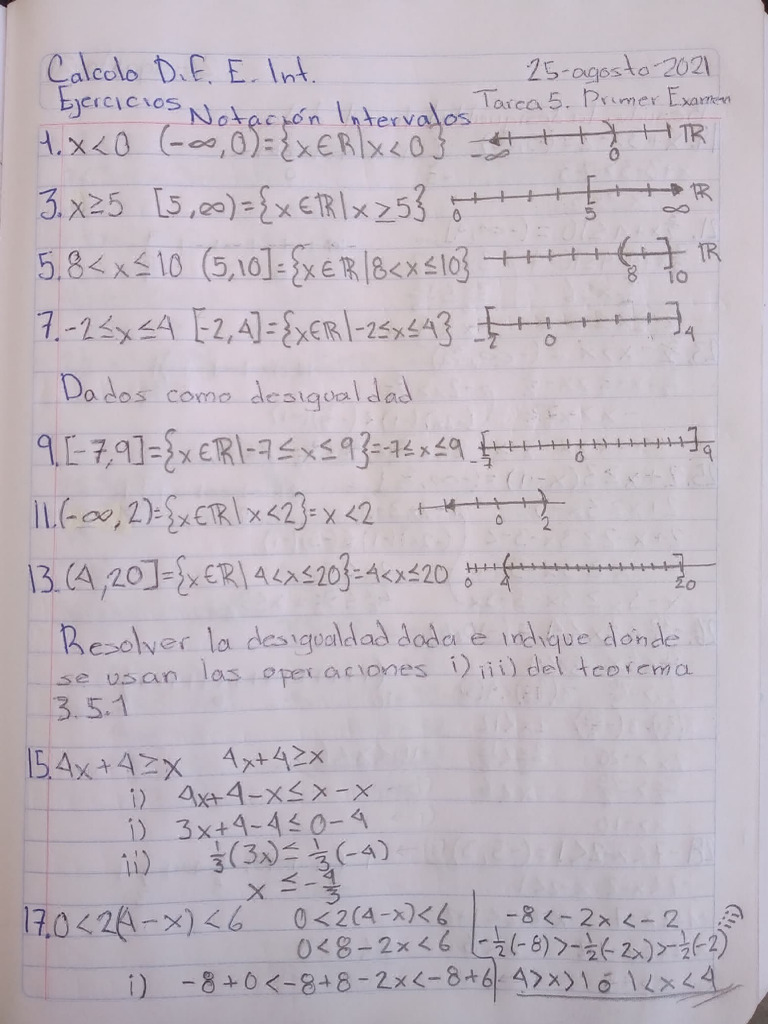 Calcolo D.E. E. Int. 25-agosto-2021
Ejercicios Notación Intervalos Tarea 5. Primer Examen
1. x<0 (-∞,0)={x∈ℝ|x<0} -∞ 0 ℝ
3. x≥5 [5,∞)={x∈ℝ|x≥5} 0 5 ∞ ℝ
5. 8<x≤10 (5,10]={x∈ℝ|8<x≤10} 8 10 ℝ
7. -2≤x≤4 [-2,4]={x∈ℝ|-2≤x≤4} -2 0 4
Dados como desigualdad
9. [-7,9]={x∈ℝ|-7≤x≤9}=-7≤x≤9 -7 0 9
11. (-∞,2)={x∈ℝ|x<2}=x<2 0 2
13. (4,20]={x∈ℝ|4<x≤20}=4<x≤20 0 4 20
Resolver la desigualdad dada e indique donde
se usan las operaciones i) iii) del teorema
3.5.1
15. 4x+4≥x 4x+4≥x
i) 4x+4-x≤x-x
i) 3x+4-4≤0-4
ii) 1/3(3x)≤1/3(-4)
x≤-4/3
17. 0<2(4-x)<6 0<2(4-x)<6 -8<-2x<-2
0<8-2x<6 -1/2(-8)>-1/2(-2x)>-1/2(-2) iii)
i) -8+0<-8+8-2x<-8+6 4>x>1 ó 1<x<4